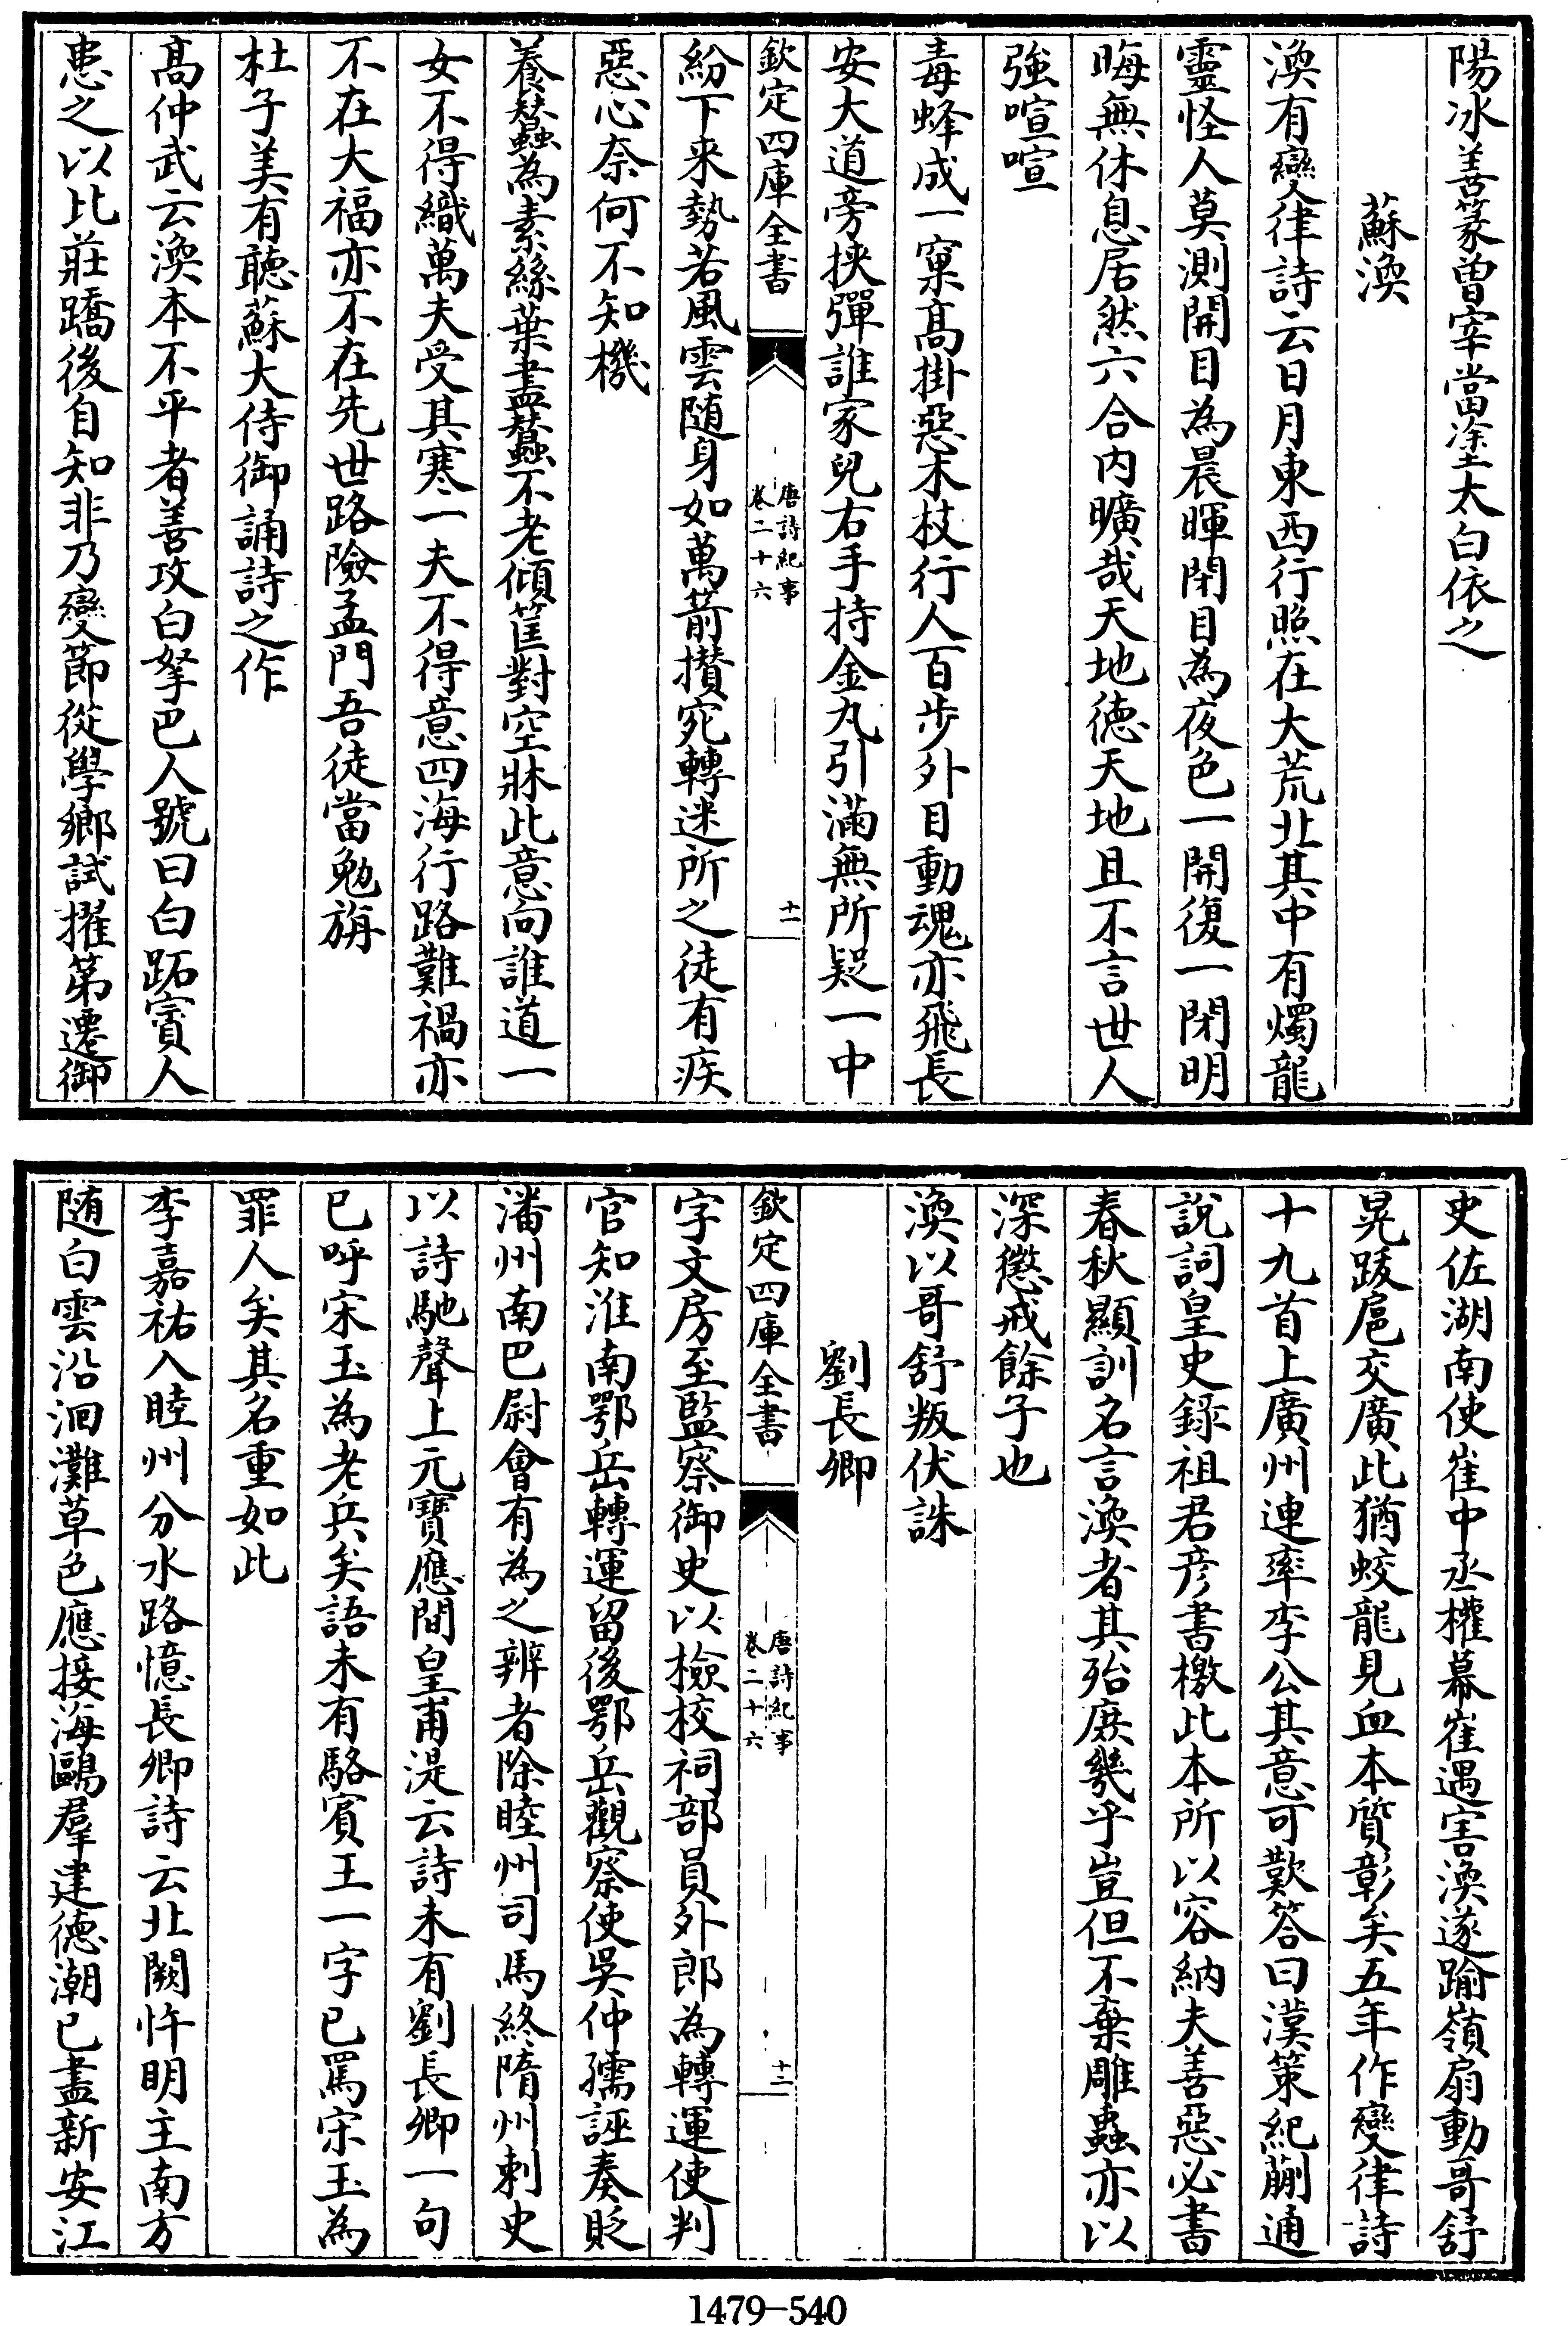 陽冰善篆曾宰當塗太白依之
蘇渙
渙有變律詩云日月東西行照在大荒北其中有燭龍
靈怪人莫測開目為晨暉閉目為夜色一開復一閉明
晦無休息居然六合内曠哉天地德天地且不言世人
強喧喧
毒蜂成一窠髙掛惡木枝行人百步外目動魂亦飛長
安大道旁挾彈誰家兒右手持金丸引滿無所疑一中
欽定四庫全書
唐詩紀事
卷二十六
十一
紛下来勢若風雲随身如萬箭攅宛轉迷所之徒有疾
惡心奈何不知機
養蠶為素絲葉盡蠶不老傾筐對空牀此意向誰道一
女不得織萬夫受其寒一夫不得意四海行路難禍亦
不在大福亦不在先世路險孟門吾徒當勉旃
杜子美有聽蘇大侍御誦詩之作
髙仲武云渙本不平者善攻白弩巴人號曰白跖賓人
患之以比莊蹻後自知非乃變節從學鄉試擢第遷御
史佐湖南使崔中丞權幕崔遇害渙遂踰嶺扇動哥舒
晃跋扈交廣此猶蛟龍見血本質彰矣五年作變律詩
十九首上廣州連率李公其意可歎答曰漢策紀蒯通
說詞皇史録祖君彦書檄此本所以容納夫善惡必書
春秋顯訓名言渙者其殆庶幾乎豈但不棄雕蟲亦以
深懲戒餘子也
渙以哥舒叛伏誅
劉長卿
字文房至監察御史以檢校祠部員外郎為轉運使判
欽定四庫全書
唐詩紀事
卷二十六
十二
官知淮南鄂岳轉運留後鄂岳觀察使吳仲孺誣奏貶
潘州南巴尉會有為之辨者除睦州司馬終隋州刺史
以詩馳聲上元寶應間皇甫湜云詩未有劉長卿一句
已呼宋玉為老兵矣語未有駱賓王一字已罵宋玉為
罪人矣其名重如此
李嘉祐入睦州分水路憶長卿詩云北闕忤明主南方
随白雲沿洄灘草色應接海鷗羣建德潮已盡新安江
1479-540